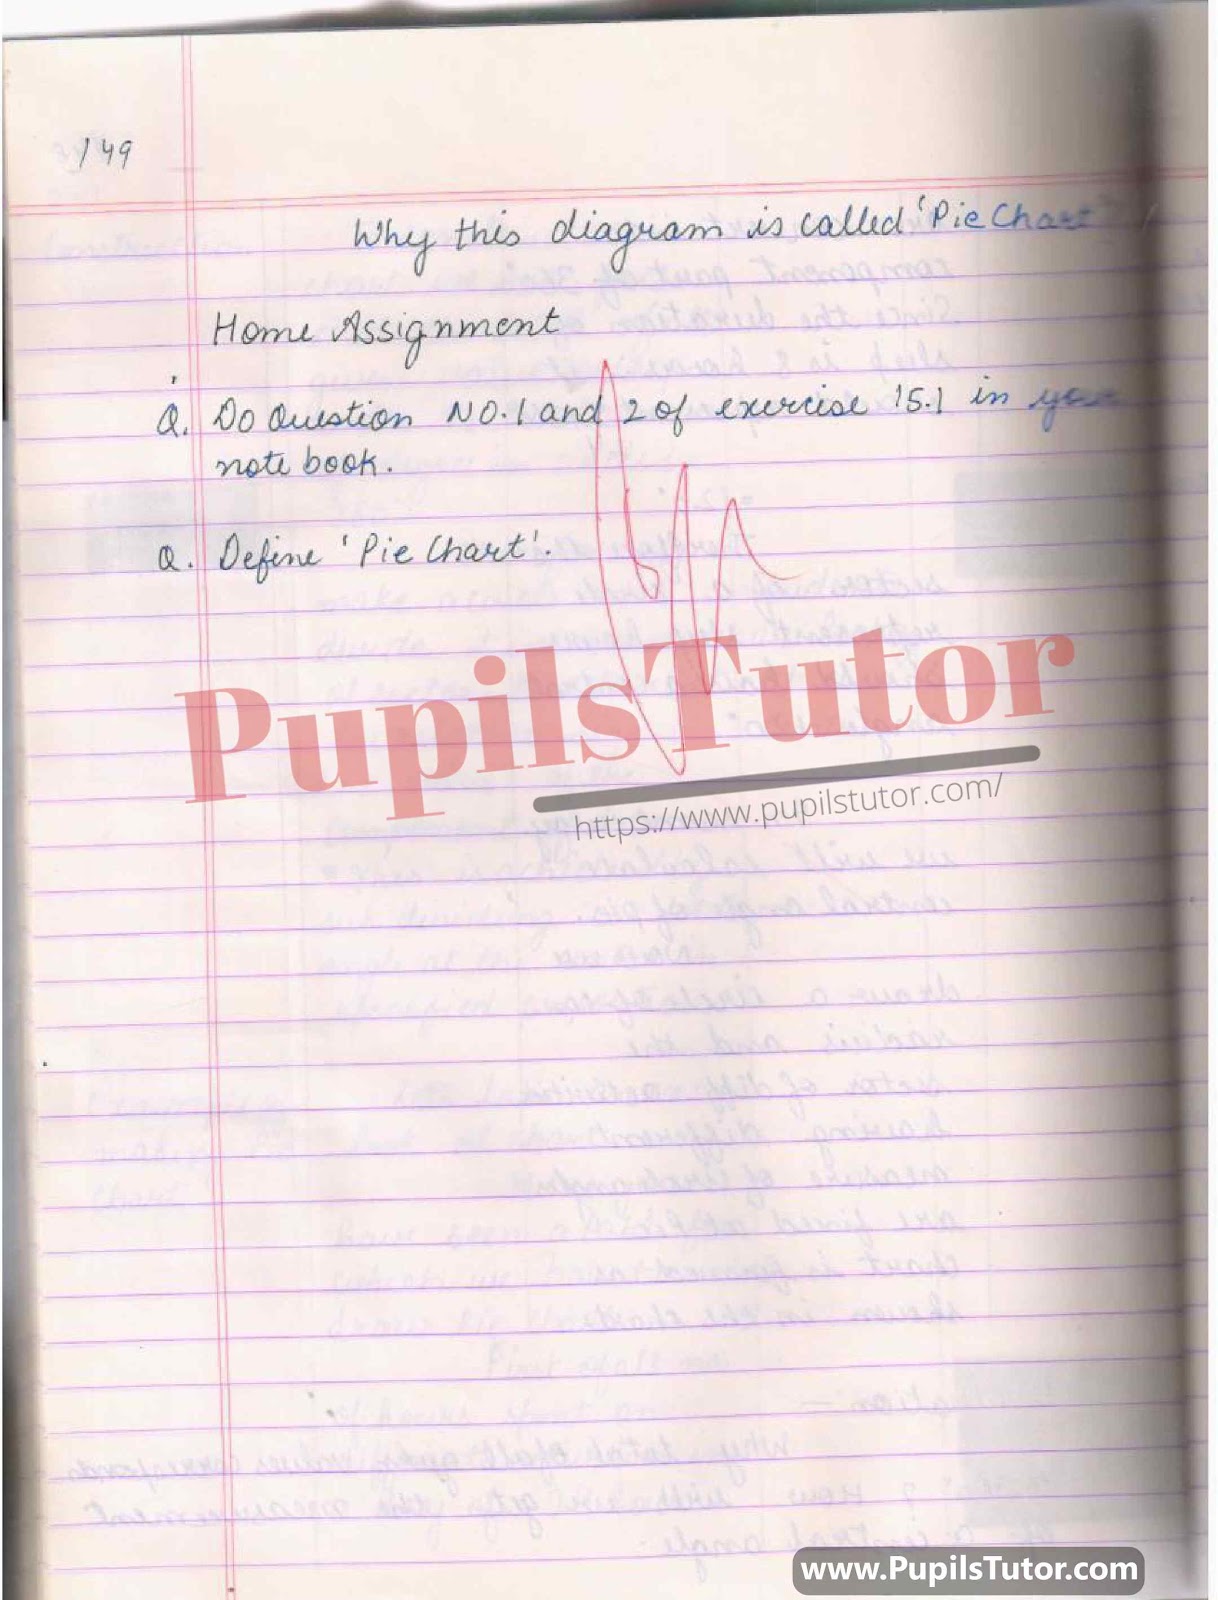 149
Why this diagram is called 'Pie Chart'
Home Assignment
Q. Do Question NO. 1 and 2 of exercise 15.1 in your
note book.
Q. Define 'Pie Chart'.
PupilsTutor
https://www.pupilstutor.com/
www.PupilsTutor.com